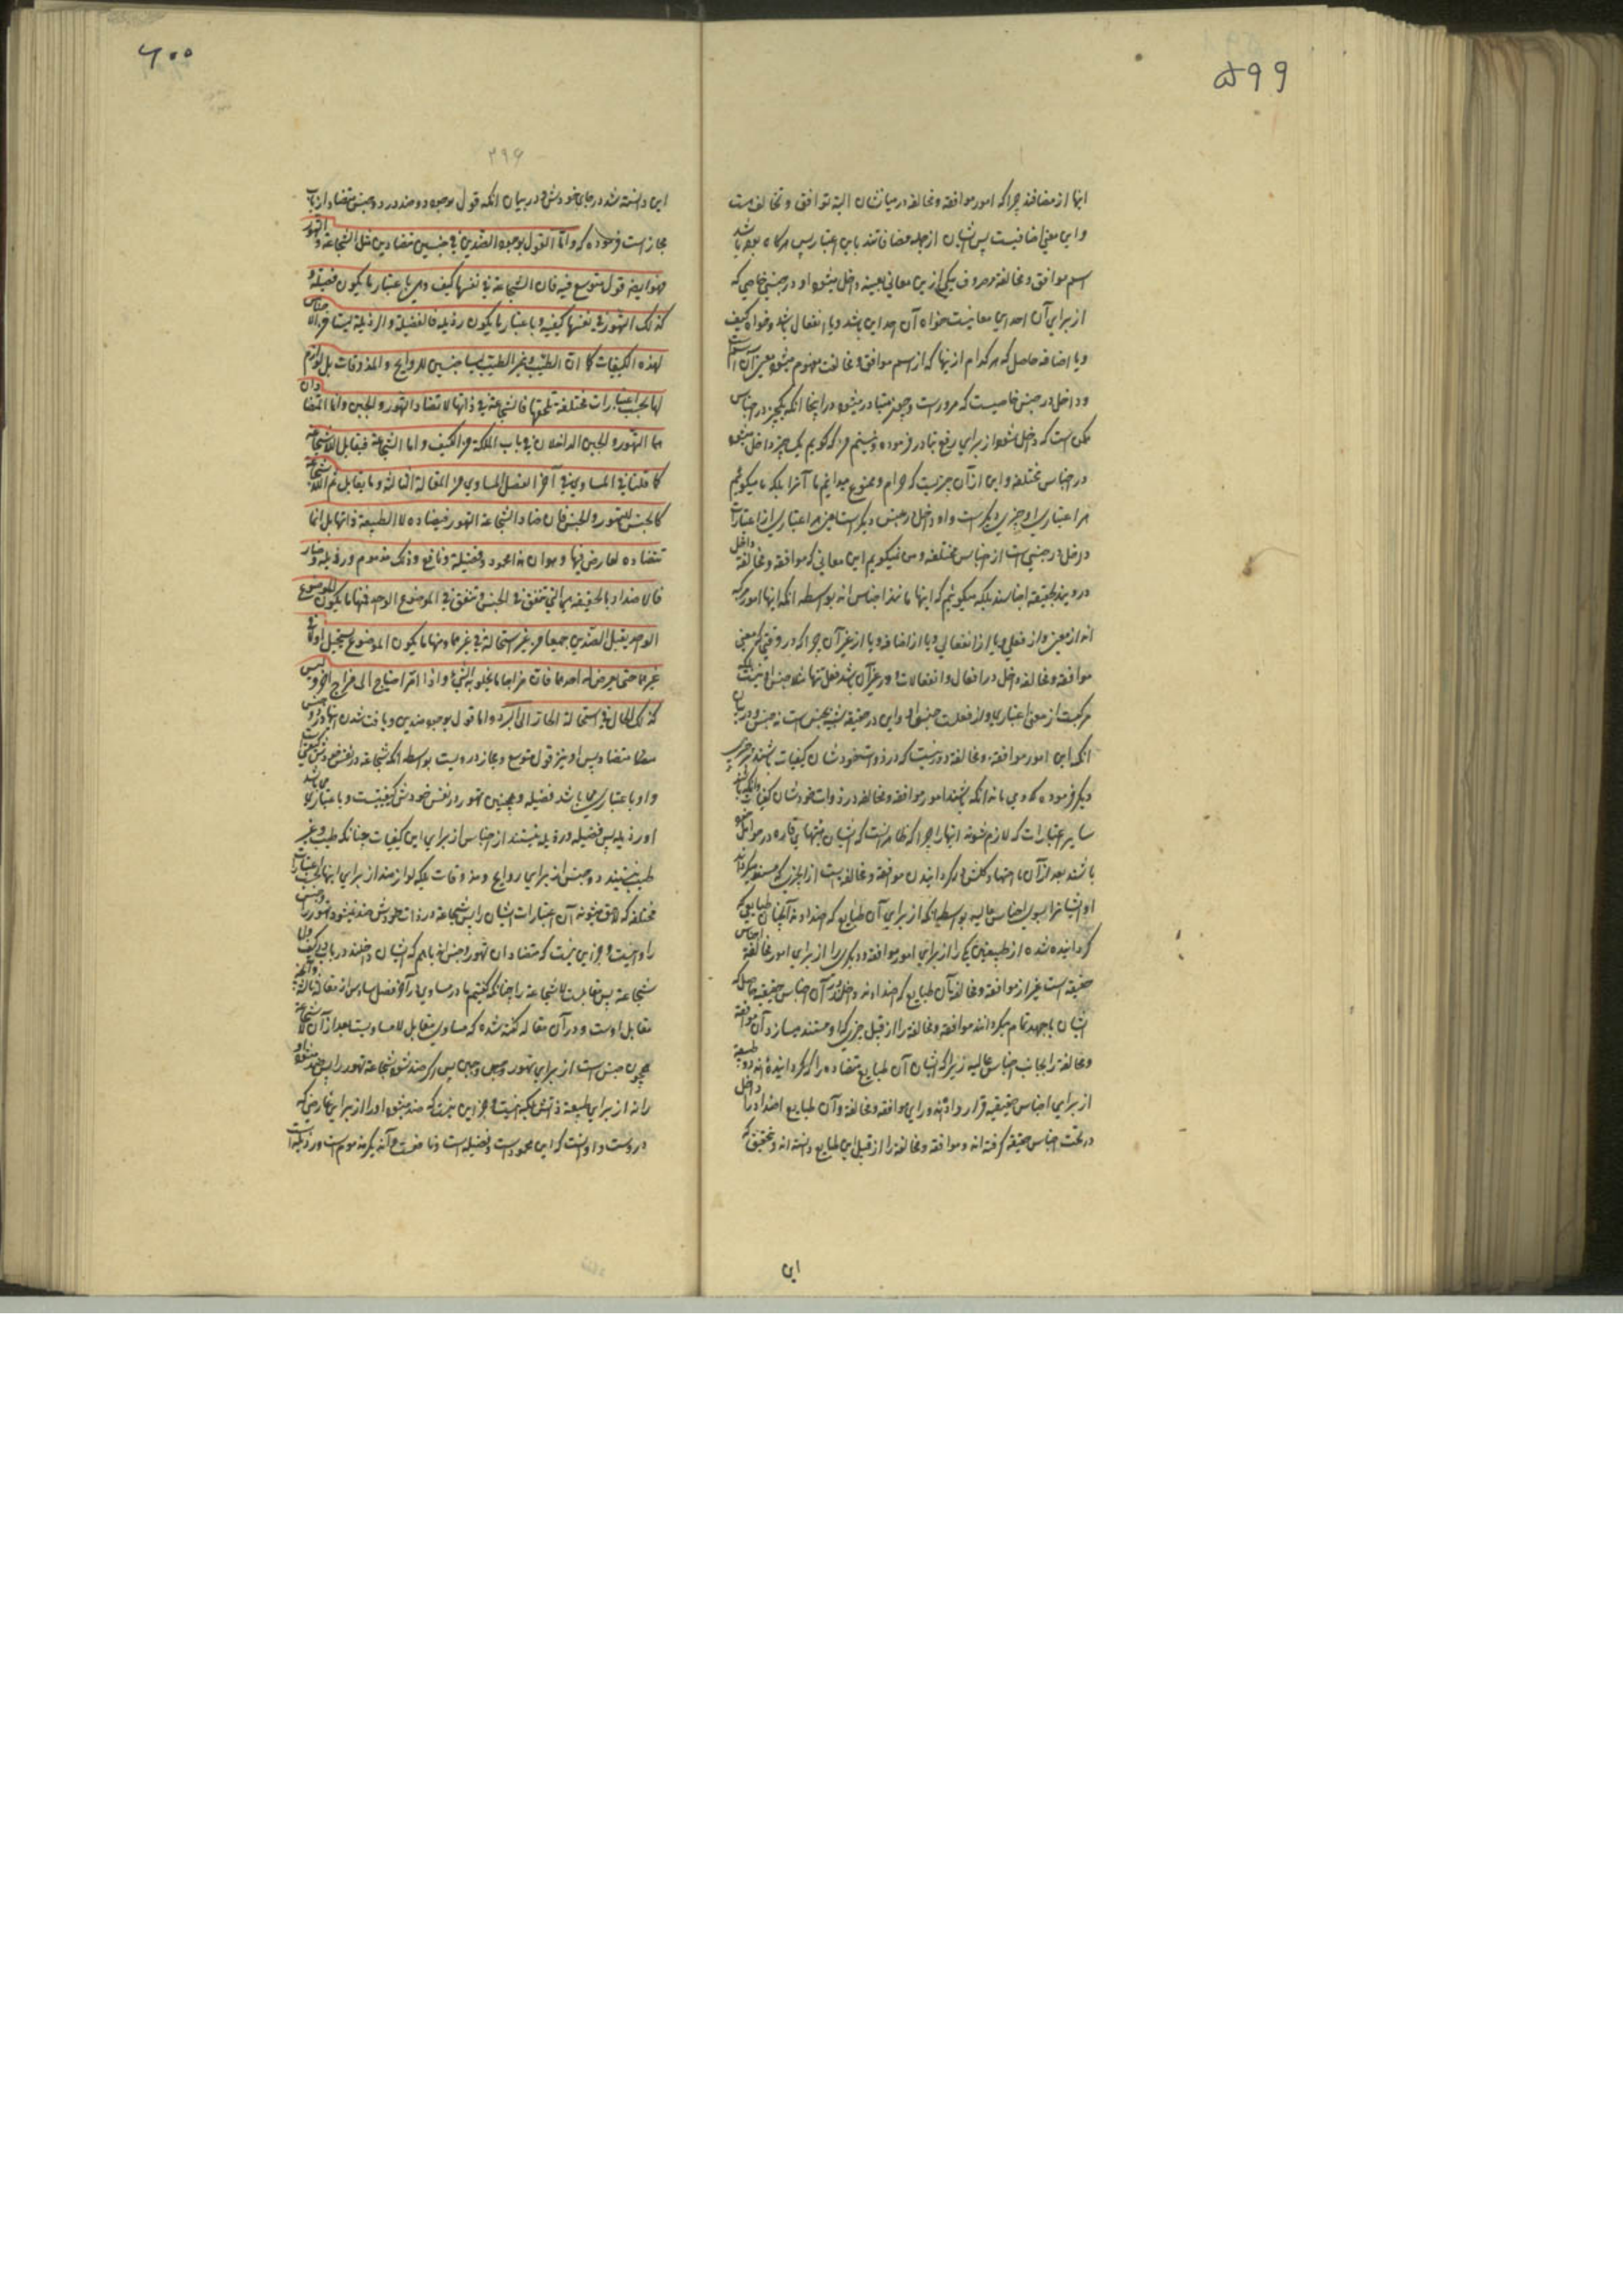 ۵۹۹
اینها از مضافند چرا که امور موافقه و مخالفه در میانشان البته توافق و تخالف هست
و این معنی اضافیست پس ایشان از جمله مضافاتند باین اعتبار پس هرگاه بوده باشد
اسم موافق و مخالفه معروف یکی از این معانی بعینه داخل میشود او در جنس خاصی که
از برای آن احد این معانیست خواه آن احد این باشد و یا انفعال باشد و خواه کیف
و یا اضافه حاصل که هر کدام از اینها که از اسم موافق و مخالفت مفهوم میشود معین آن است
و داخل در جنس خاصیست که مر اوراست و چون متبادر میشود در اینجا انکه یکچیز در اجناس
ممکن است که داخل شود از برای رفع تبادر فرموده و نیستم من که گویم یک چیز داخل میشود
در اجناس مختلفه و این از آن چیزیست که حرام و ممنوع میدانیم ما آنرا بلکه ما میگوئیم
هر اعتباری او چیزی دیگر است و او داخل در جنس دیگر است یعنی هر اعتباری از اعتبارات
داخل در جنسی است از اجناس مختلفه و من نمیگویم این معانی که موافقه و مخالفه داخل
درویند بحقیقه اجناسند بلکه میگوئیم که اینها مانند اجناس اند بواسطه انکه اینها امور مرکبه
اند از معنی و از فعلی و یا از انفعالی و یا از اضافه و یا از غیر آن چرا که در وقتی که معنی
موافقه و مخالفه داخل در افعال و انفعالات و در غیر آن باشد فعل تنها مثلا جنس او نیست بلکه
مرکبست از معنی اعتباری و از فعلست جنس او و این در حقیقه شبیه بجنس است نه جنس و در بیان
انکه این امور موافقه و مخالفه دور نیست که در ذوات خودشان کیفیات باشند چیزی
دیگر فرموده که و می ماند انکه باشند امور موافقه و مخالفه در ذوات خودشان کیفیات و انکه باشند
سایر اعتبارات که لازم شوند اینها را چرا که ظاهر اینست که ایشان
باشند بعد از آن با اجتهاد گردانیدن موافقه و مخالفه است از چیزی که
او ایشانرا بسوی اجناس عالیه بواسطه انکه از برای آن طبایع که اضدادند آنچنان طبایعی که
گردانیده شده از طبیعتین یکی را از برای امور موافقه و دیگری را از برای امور مخالفه اجناس
حقیقه است غیر از موافقه و مخالفه آن طبایع که اضدادند داخل اند آن اجناس حقیقیه حاصل که
ایشان باجهد تمام میگردانند موافقه و مخالفه را از قبیل چیزی که او مستند میسازد آن موافقه
و مخالفه را بجانب اجناس عالیه زیرا که ایشان آن طبایع متضاده را که گردانیده اند دو طبیعه
از برای اجناس حقیقیه قرار داده اند ورای موافقه و مخالفه و آن طبایع اضداد را داخل
در تحت اجناس حقیقه گرفته اند و موافقه و مخالفه را از قبیل این طبایع دانسته اند و تحقیق که
این
۶۰۰
۳۹۶
این دانسته شد در جای خودش و در بیان انکه قول بوجود دو ضد در دو جنس متضاد از باب
مجاز است فرموده که و اما القول بوجود الضدین فی جنسین متضادین مثل الشجاعة و التهور
فهو ایضا قول متوسع فیه فان الشجاعة فی نفسها کیف و هی باعتبار ما یکون فضیلة و
کذلک التهور فی نفسها کیفیه و باعتبار ما یکون رذیله فالفضیلة و الرذیلة لیستا من اجناس
لهذه الکیفیات کما ان الطیب و غیر الطیب لیسا جنسین للروایح و المذوقات بل لوازم
لها بحسب اعتبارات مختلفة تلحقها فالشجاعة فی ذاتها لا تضاد التهور و الجبن و انما المتضادان
هما التهور و الجبن الداخلان فی باب الملکة من الکیف و اما الشجاعة فیقابل اللاشجاعة
کما قلنا فی المساوی فی آخر الفصل السادس من المقالة الثالثة و ما یقابل ثم اللاشجاعة
کالجنس للتهور و الجبن فان ضاد الشجاعة التهور فیضاده لا لطبیعة ذاتها بل انما
تتضاده لعارض فیها و هو ان هذا محمود و فضیلة و نافع و ذلک مذموم و رذیلة و ضار
فالاضداد بالحقیقه هی التی تتفق فی الجنس و تتفق فی الموضوع الواحد فمنها ما یکون الموضوع
الواحد یقبل الضدین جمیعا من غیر استحالة فی غیرها و منها ما یکون الموضوع یستحیل اولا فی
غیرها حتی یعرض له احدها فان مزاجا ما یحلو به الشیء و اذا امر احتاج الی مزاج اخر و لیس
کذلک الحال فی استحالة الحار الی البرد و اما قول بوجود ضدین و یافت شدن انها در دو جنس
متضاد پس او نیز قول متوسع و مجاز درویست بواسطه انکه شجاعه در نفس خودش کیفیتی است
و او باعتباری می باشد فضیله و همچنین تهور در نفس خودش کیفیتست و باعتباری می باشد
او رذیله پس فضیله و رذیله نیستند از اجناس از برای این کیفیات چنانکه طیب و غیر
طیب نیستند دو جنس از برای روایح و مذوقات بلکه لوازمند از برای اینها بحسب اعتبارات
مختلفه که لاحق میشوند آن اعتبارات ایشان را پس شجاعه در ذات خودش ضد نمیشود تهور را و جبن
را و نیست و جز این نیست که متضادان تهور و جبن اند با هم که ایشان داخلند در باب کیف و اما
شجاعة پس مقابلست لاشجاعة را چنانکه گفتیم ما در مساوی در آخر فصل سادس از مقاله ثالثه و آنچه
مقابل اوست و در آن مقاله گفته شده که مساوی مقابل لامساویست بعد از آن لاشجاعة
همچون جنس است از برای تهور و جبن پس اگر ضد شود شجاعة تهور را پس ضد میشود او
را نه از برای طبیعة ذاتش بلکه نیست و جز این نیست که ضد میشود او را از برای عارضی که
در وست و او اینست که این محمود است و فضیله است و نافع است و آن دیگر مذموم است و رذیله است